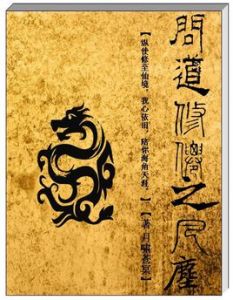 問道修僊之凡塵
【纵使修至仙境，我心依旧，陪你海角天涯。】
【著 月啸苍